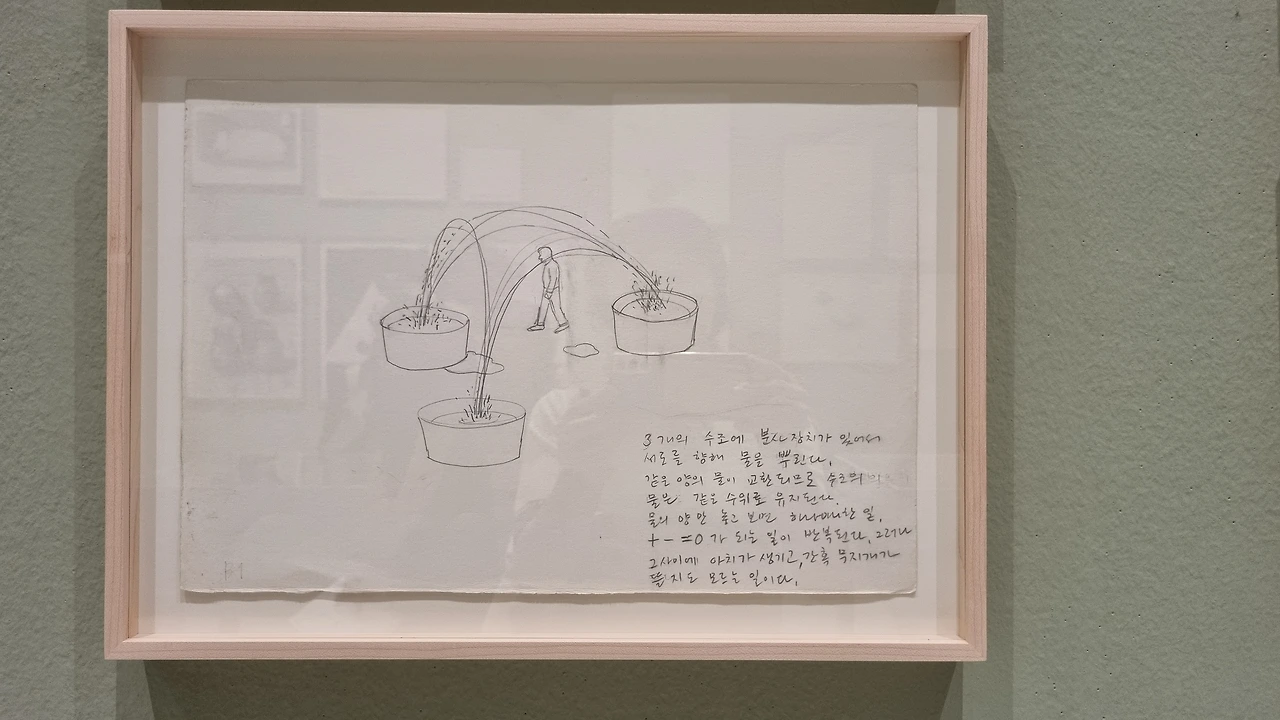 3개의 수조에 분사장치가 있어서
서로를 향해 물을 뿌린다.
같은 양의 물이 교환되므로 수조의
물은 같은 수위로 유지된다.
물의 양만 놓고 보면 하나마나한 일,
+ - = 0가 되는 일이 반복된다. 그러나
그 사이에 아치가 생기고, 간혹 무지개가
뜰지도 모르는 일이다.